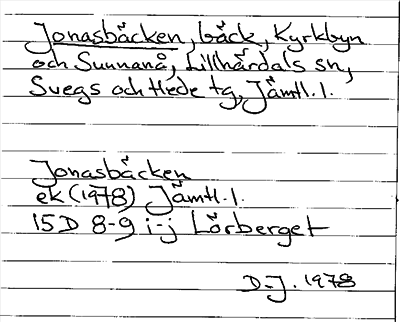 Jonasbäcken, bäck, Kyrkbyn
och Sunnanå, Lillhärdals sn,
Svegs och Hede tg, Jämtl. l.
Jonasbäcken
ek (1978) Jämtl. l.
15D 8-9 i-j Lörberget
D-J. 1978